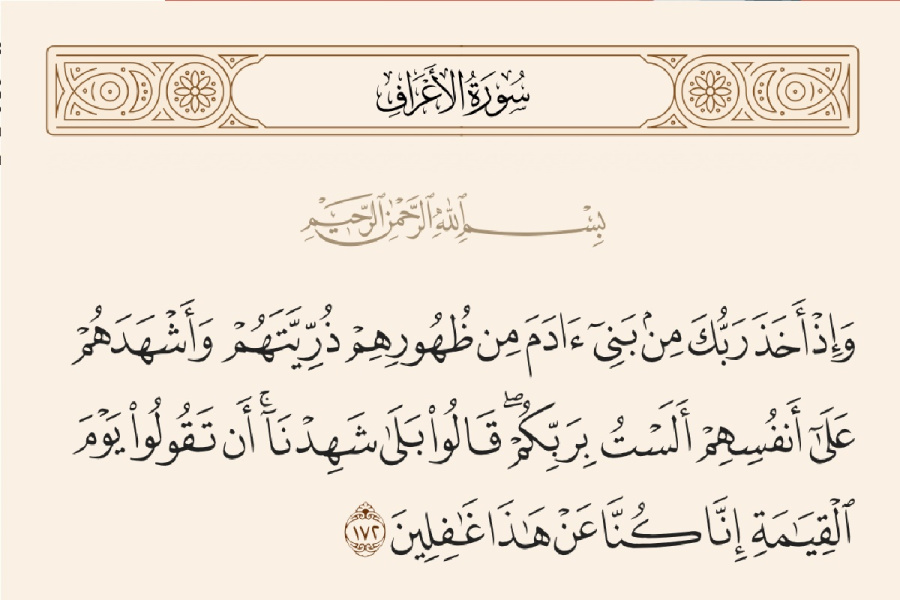 سُورَةُ الأَعْرَافِ
بِسْمِ ٱللَّهِ ٱلرَّحْمَٰنِ ٱلرَّحِيمِ
وَإِذْ أَخَذَ رَبُّكَ مِنۢ بَنِىٓ ءَادَمَ مِن ظُهُورِهِمْ ذُرِّيَّتَهُمْ وَأَشْهَدَهُمْ
عَلَىٰٓ أَنفُسِهِمْ أَلَسْتُ بِرَبِّكُمْ ۖ قَالُوا۟ بَلَىٰ شَهِدْنَآ ۚ أَن تَقُولُوا۟ يَوْمَ
ٱلْقِيَـٰمَةِ إِنَّا كُنَّا عَنْ هَـٰذَا غَـٰفِلِينَ ١٧٢